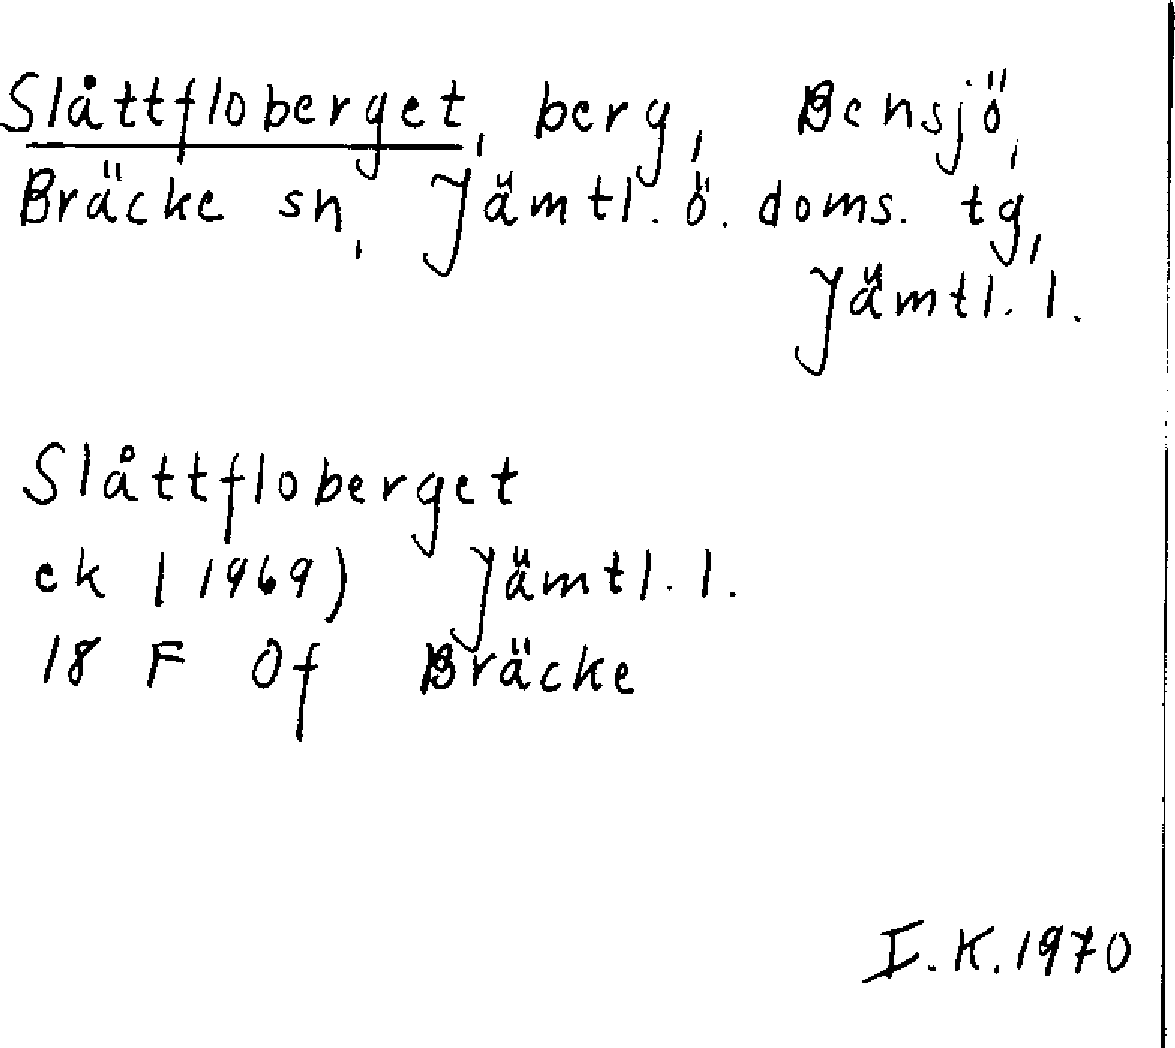 Slåttfloberget, berg, Bensjö,
Bräcke sn, Jämtl. ö. doms. tg,
Jämtl. l.
Slåttfloberget
ek (1969) Jämtl. l.
18 F Of Bräcke
I.K. 1970